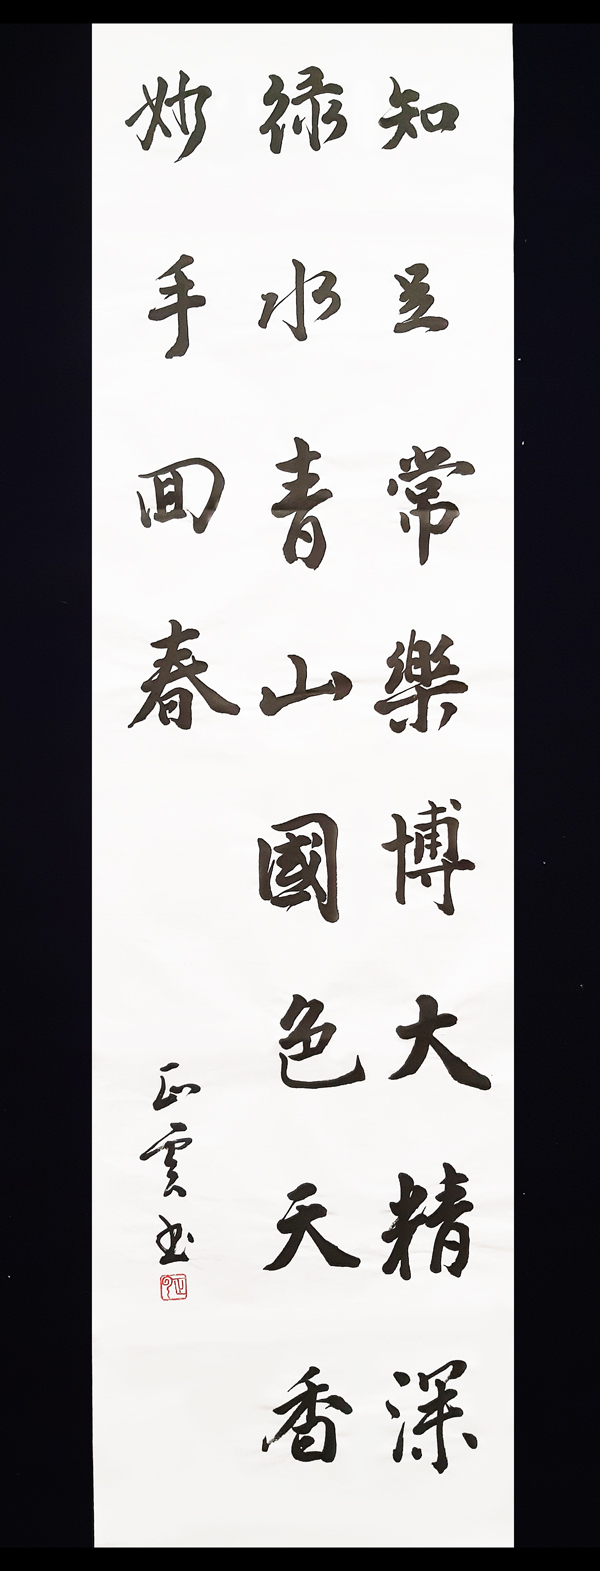 知足常樂博大精深
綠水青山國色天香
妙手回春
正雲书